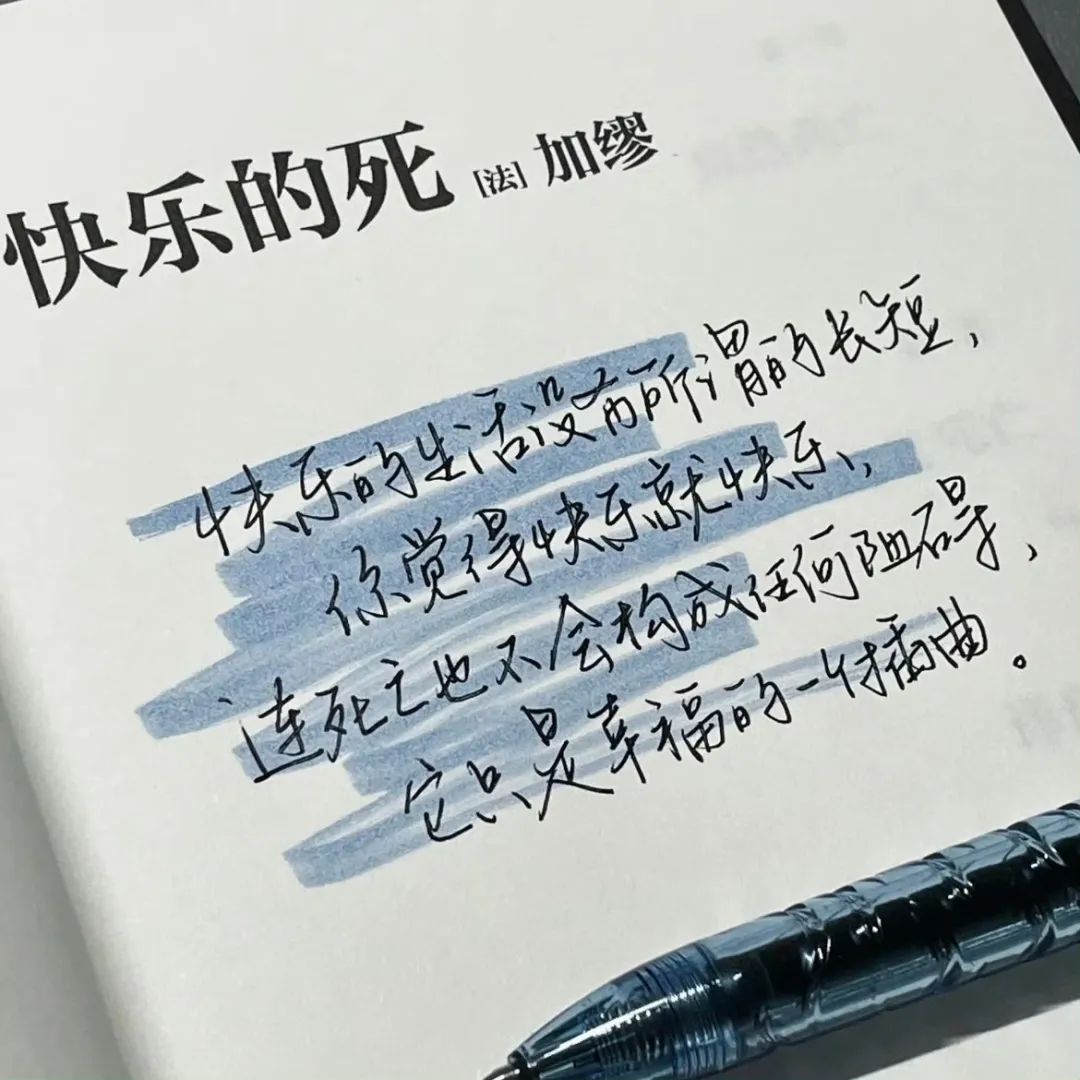 快乐的死 [法] 加缪
快乐的生活没有所谓的长短，
你觉得快乐就快乐，
连死亡也不会构成任何阻碍，
它只是幸福的一个插曲。